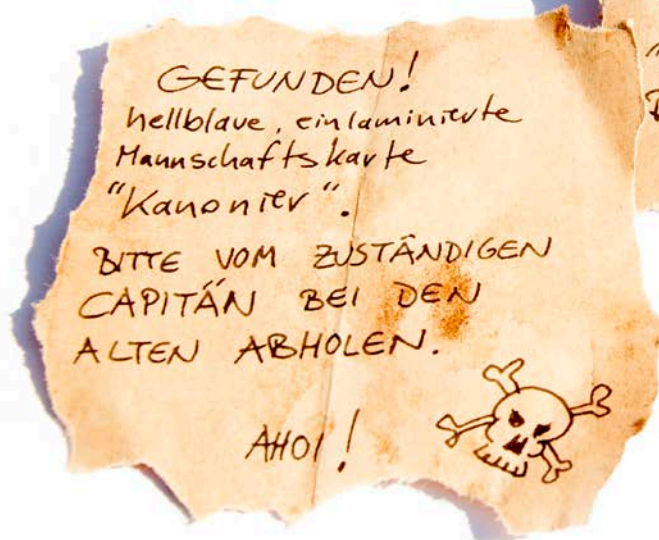 GEFUNDEN!
hellblaue, einlaminierte
Mannschaftskarte
"Kanonier".
BITTE VOM ZUSTÄNDIGEN
CAPITÄN BEI DEN
ALTEN ABHOLEN.
AHOI!